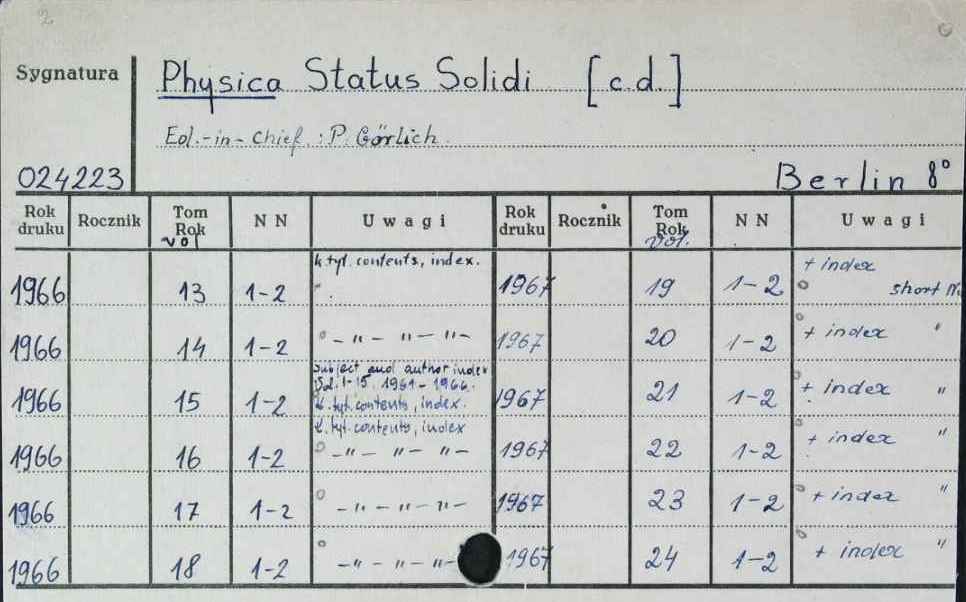 2
Sygnatura Physica Status Solidi [c.d.]
Ed.-in-Chief.: P. Görlich.
024223 Berlin 8°
Rok druku Rocznik Tom Rok vol NN Uwagi Rok druku Rocznik Tom Rok vol. NN Uwagi
k. tyt. contents, index. + index
1966 13 1-2 1967 19 1-2 short N.
1966 14 1-2 -"- "-"- 1967 20 1-2 + index "
Subject and author index
Vol. 1-15. 1961-1966.
1966 15 1-2 k. tyt. contents, index. 1967 21 1-2 + index "
k. tyt. contents, index
1966 16 1-2 -"- "- "- 1967 22 1-2 + index "
1966 17 1-2 -"- "- "- 1967 23 1-2 + index "
1966 18 1-2 -"- "- "- 1967 24 1-2 + index "